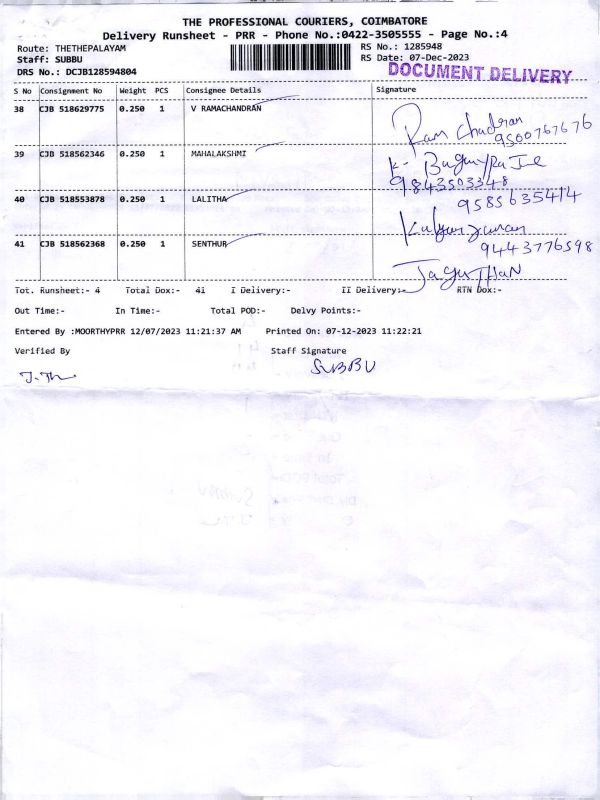 THE PROFESSIONAL COURIERS, COIMBATORE
Delivery Runsheet - PRR - Phone No.:0422-3505555 - Page No.:4
Route: THETHEPALAYAM RS No.: 1285948
Staff: SUBBU RS Date: 07-Dec-2023
DRS No.: DCJB128594804 DOCUMENT DELIVERY
S No Consignment No Weight PCS Consignee Details Signature
38 CJB 518629775 0.250 1 V RAMACHANDRAN
Ram Chadran
9500767676
39 CJB 518562346 0.250 1 MAHALAKSHMI
K-
9843503348
40 CJB 518553878 0.250 1 LALITHA 9585635414
41 CJB 518562368 0.250 1 SENTHUR 9443776598
JaguTHaN
Tot. Runsheet:- 4 Total Dox:- 41 I Delivery:- II Delivery:- RTN Dox:-
Out Time:- In Time:- Total POD:- Delvy Points:-
Entered By :MOORTHYPRR 12/07/2023 11:21:37 AM Printed On: 07-12-2023 11:22:21
Verified By Staff Signature
SUBBU